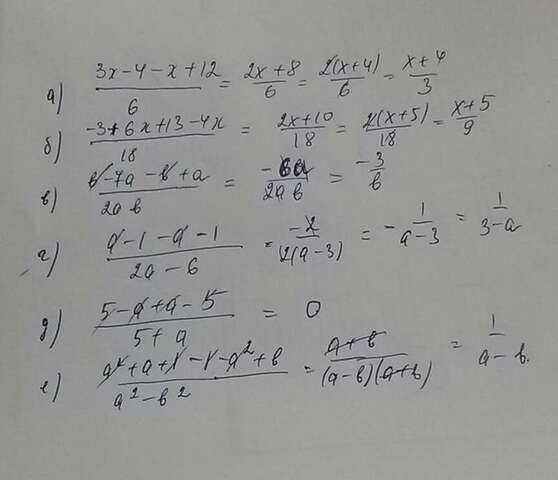 а) (3x-4-x+12)/6 = (2x+8)/6 = (2(x+4))/6 = (x+4)/3
б) (-3+6x+13-4x)/18 = (2x+10)/18 = (2(x+5))/18 = (x+5)/9
в) (в-7a-в+a)/(2aв) = (-6a)/(2aв) = (-3)/в
г) (a-1-a-1)/(2a-6) = (-2)/(2(a-3)) = -1/(a-3) = 1/(3-a)
д) (5-a+a-5)/(5+a) = 0
е) (a²+a+1-1-a²+в)/(a²-в²) = (a+в)/((a-в)(a+в)) = 1/(a-в)